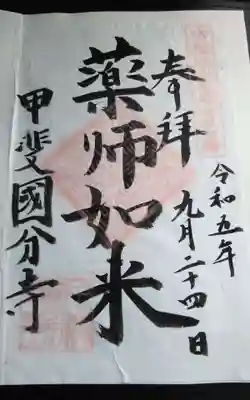 奉拝
令和五年
九月二十四日
薬师如来
甲斐國分寺